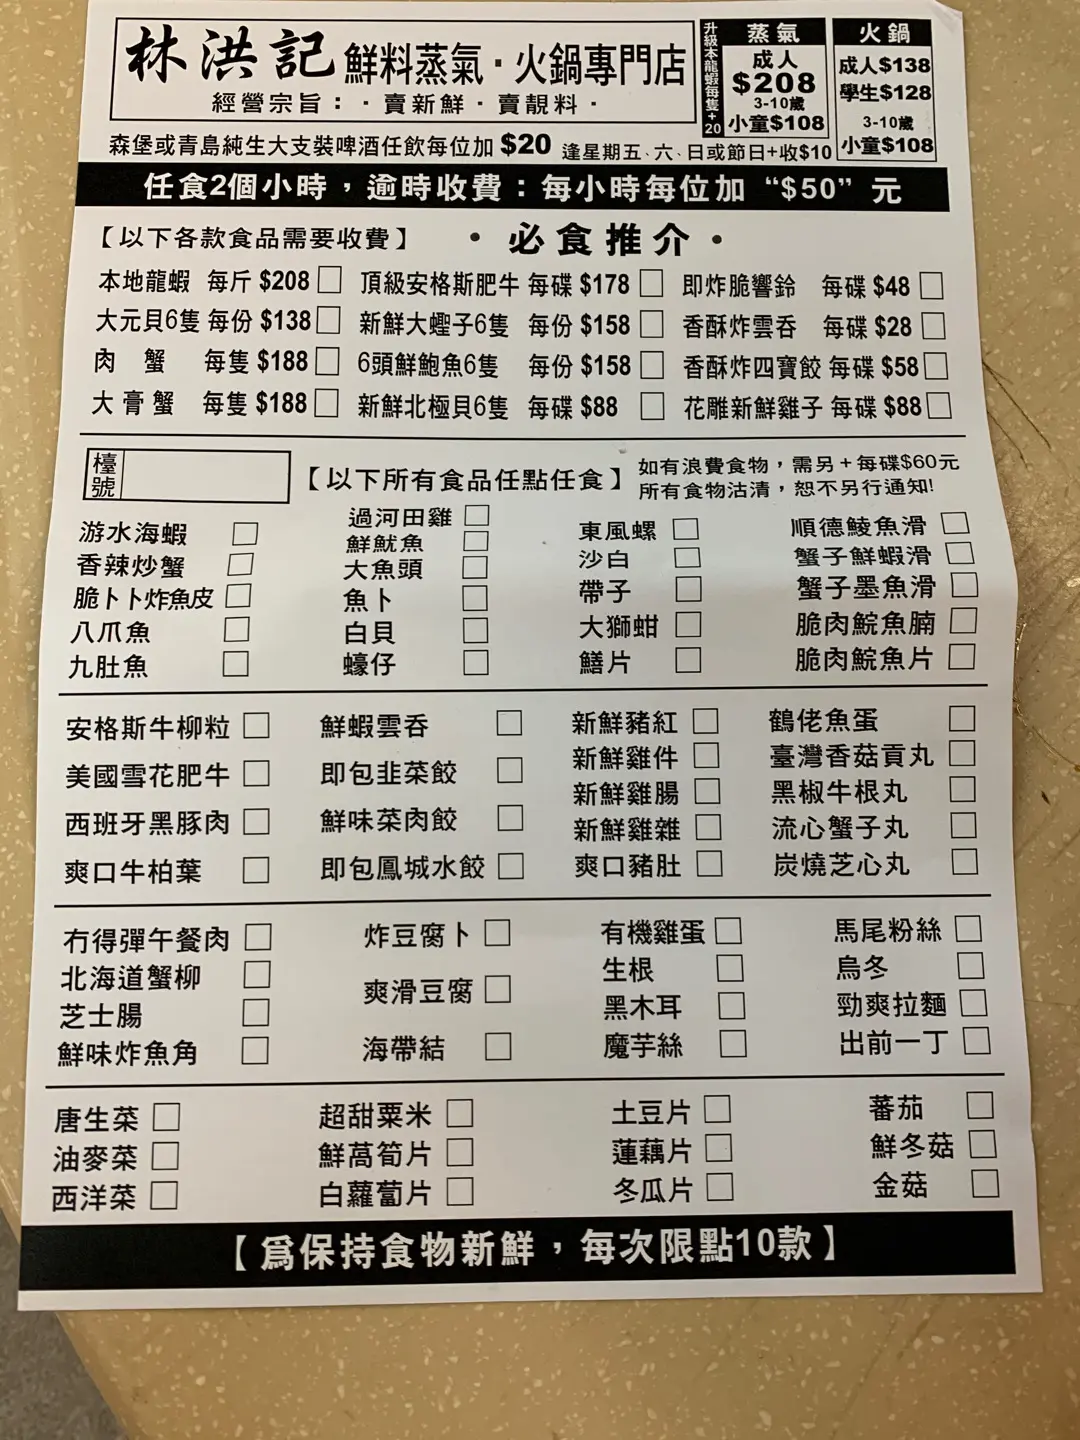 林洪記 鮮料蒸氣·火鍋專門店
經營宗旨：·賣新鮮·賣靚料·
升級本龍蝦每隻+20
蒸氣
成人
$208
3-10歲
小童$108
火鍋
成人$138
學生$128
3-10歲
小童$108
森堡或青島純生大支裝啤酒任飲每位加 $20 逢星期五、六、日或節日+收$10
任食2個小時，逾時收費：每小時每位加 “$50” 元
【以下各款食品需要收費】 ·必食推介·
本地龍蝦 每斤 $208 頂級安格斯肥牛 每碟 $178 即炸脆響鈴 每碟 $48
大元貝6隻 每份 $138 新鮮大蟶子6隻 每份 $158 香酥炸雲吞 每碟 $28
肉蟹 每隻 $188 6頭鮮鮑魚6隻 每份 $158 香酥炸四寶餃 每碟 $58
大膏蟹 每隻 $188 新鮮北極貝6隻 每碟 $88 花雕新鮮雞子 每碟 $88
檯號
【以下所有食品任點任食】
如有浪費食物，需另+每碟$60元
所有食物沽清，恕不另行通知!
游水海蝦
香辣炒蟹
脆卜卜炸魚皮
八爪魚
九肚魚
過河田雞
鮮魷魚
大魚頭
魚卜
白貝
蠔仔
東風螺
沙白
帶子
大獅蚶
鱔片
順德鯪魚滑
蟹子鮮蝦滑
蟹子墨魚滑
脆肉鯇魚腩
脆肉鯇魚片
安格斯牛柳粒
美國雪花肥牛
西班牙黑豚肉
爽口牛柏葉
鮮蝦雲吞
即包韭菜餃
鮮味菜肉餃
即包鳳城水餃
新鮮豬紅
新鮮雞件
新鮮雞腸
新鮮雞雜
爽口豬肚
鶴佬魚蛋
臺灣香菇貢丸
黑椒牛根丸
流心蟹子丸
炭燒芝心丸
冇得彈午餐肉
北海道蟹柳
芝士腸
鮮味炸魚角
炸豆腐卜
爽滑豆腐
海帶結
有機雞蛋
生根
黑木耳
魔芋絲
馬尾粉絲
烏冬
勁爽拉麵
出前一丁
唐生菜
油麥菜
西洋菜
超甜粟米
鮮萵筍片
白蘿蔔片
土豆片
蓮藕片
冬瓜片
蕃茄
鮮冬菇
金菇
【爲保持食物新鮮，每次限點10款】